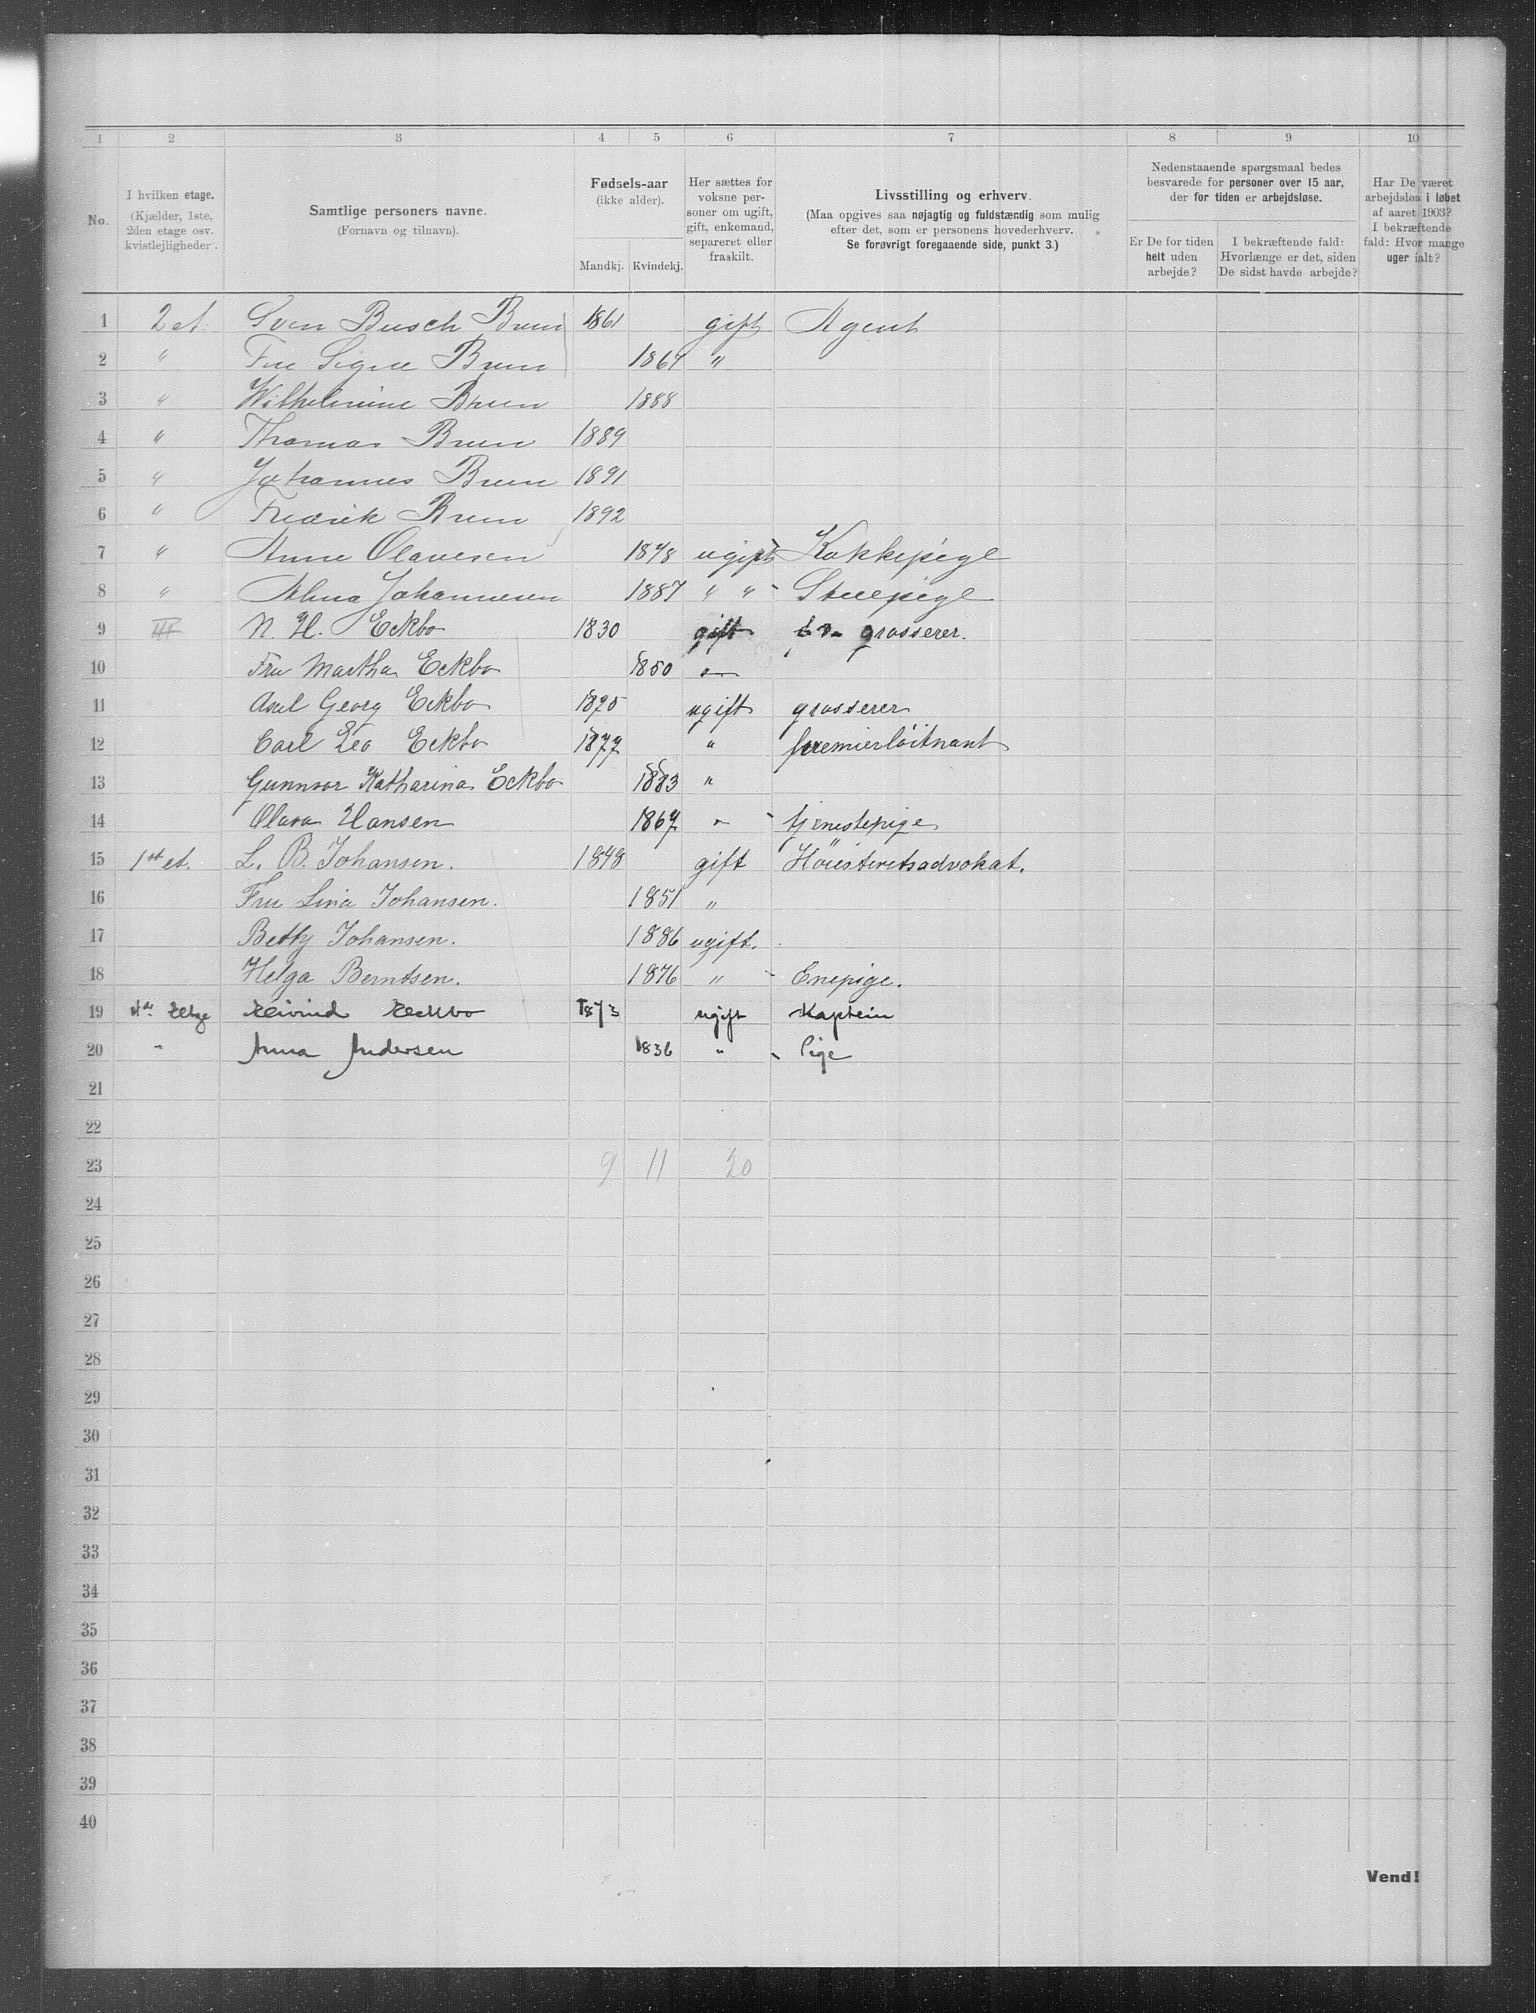 1 2 3 4 5 6 7 8 9 10
No. | I hvilken etage. (Kjælder, 1ste, 2den etage osv. kvistlejligheder). | Samtlige personers navne. (Fornavn og tilnavn). | Fødsels-aar (ikke alder). Mandkj. Kvindekj. | Her sættes for voksne personer om ugift, gift, enkemand, separeret eller fraskilt. | Livsstilling og erhverv. (Maa opgives saa nøjagtig og fuldstændig som mulig efter det, som er personens hovederhverv. Se forøvrigt foregaaende side, punkt 3.) | Nedenstaaende spørgsmaal bedes besvarede for personer over 15 aar, der for tiden er arbejdsløse. Er De for tiden helt uden arbejde? | I bekræftende fald: Hvorlænge er det, siden De sidst havde arbejde? | Har De været arbejdsløs i løbet af aaret 1903? I bekræftende fald: Hvor mange uger ialt?
1 2 et. Sven Busch Brun 1861 gift Agent
2 " Fru Signe Brun 1867 "
3 " Wilhelmine Brun 1888
4 " Thomas Brun 1889
5 " Johannes Brun 1891
6 " Fredrik Brun 1892
7 " Anne Olavesen 1878 ugift Kokkepige
8 " Alma Johannesen 1887 " " - Stuepige
9 III N. H. Eckbo 1830 gift grosserer.
10 Fru Martha Eckbo 1850 "
11 Axel Georg Eckbo 1875 ugift grosserer
12 Carl Leo Eckbo 1877 " premierløitnant
13 Gunnvor Katharina Eckbo 1883 "
14 Olava Hansen 1867 " - tjenestepige
15 1st et. L. B. Johansen. 1848 gift Höiesteretsadvokat.
16 Fru Lina Johansen. 1851 "
17 Betty Johansen. 1886 ugift.
18 Helga Berntsen. 1876 " - Enepige.
19 4de Etage Eivind Eckbo 1873 ugift Kaptein
20 " Anna Andersen 1836 " - Pige
21
22
23 9 11 20
24
25
26
27
28
29
30
31
32
33
34
35
36
37
38
39
40
Vend!